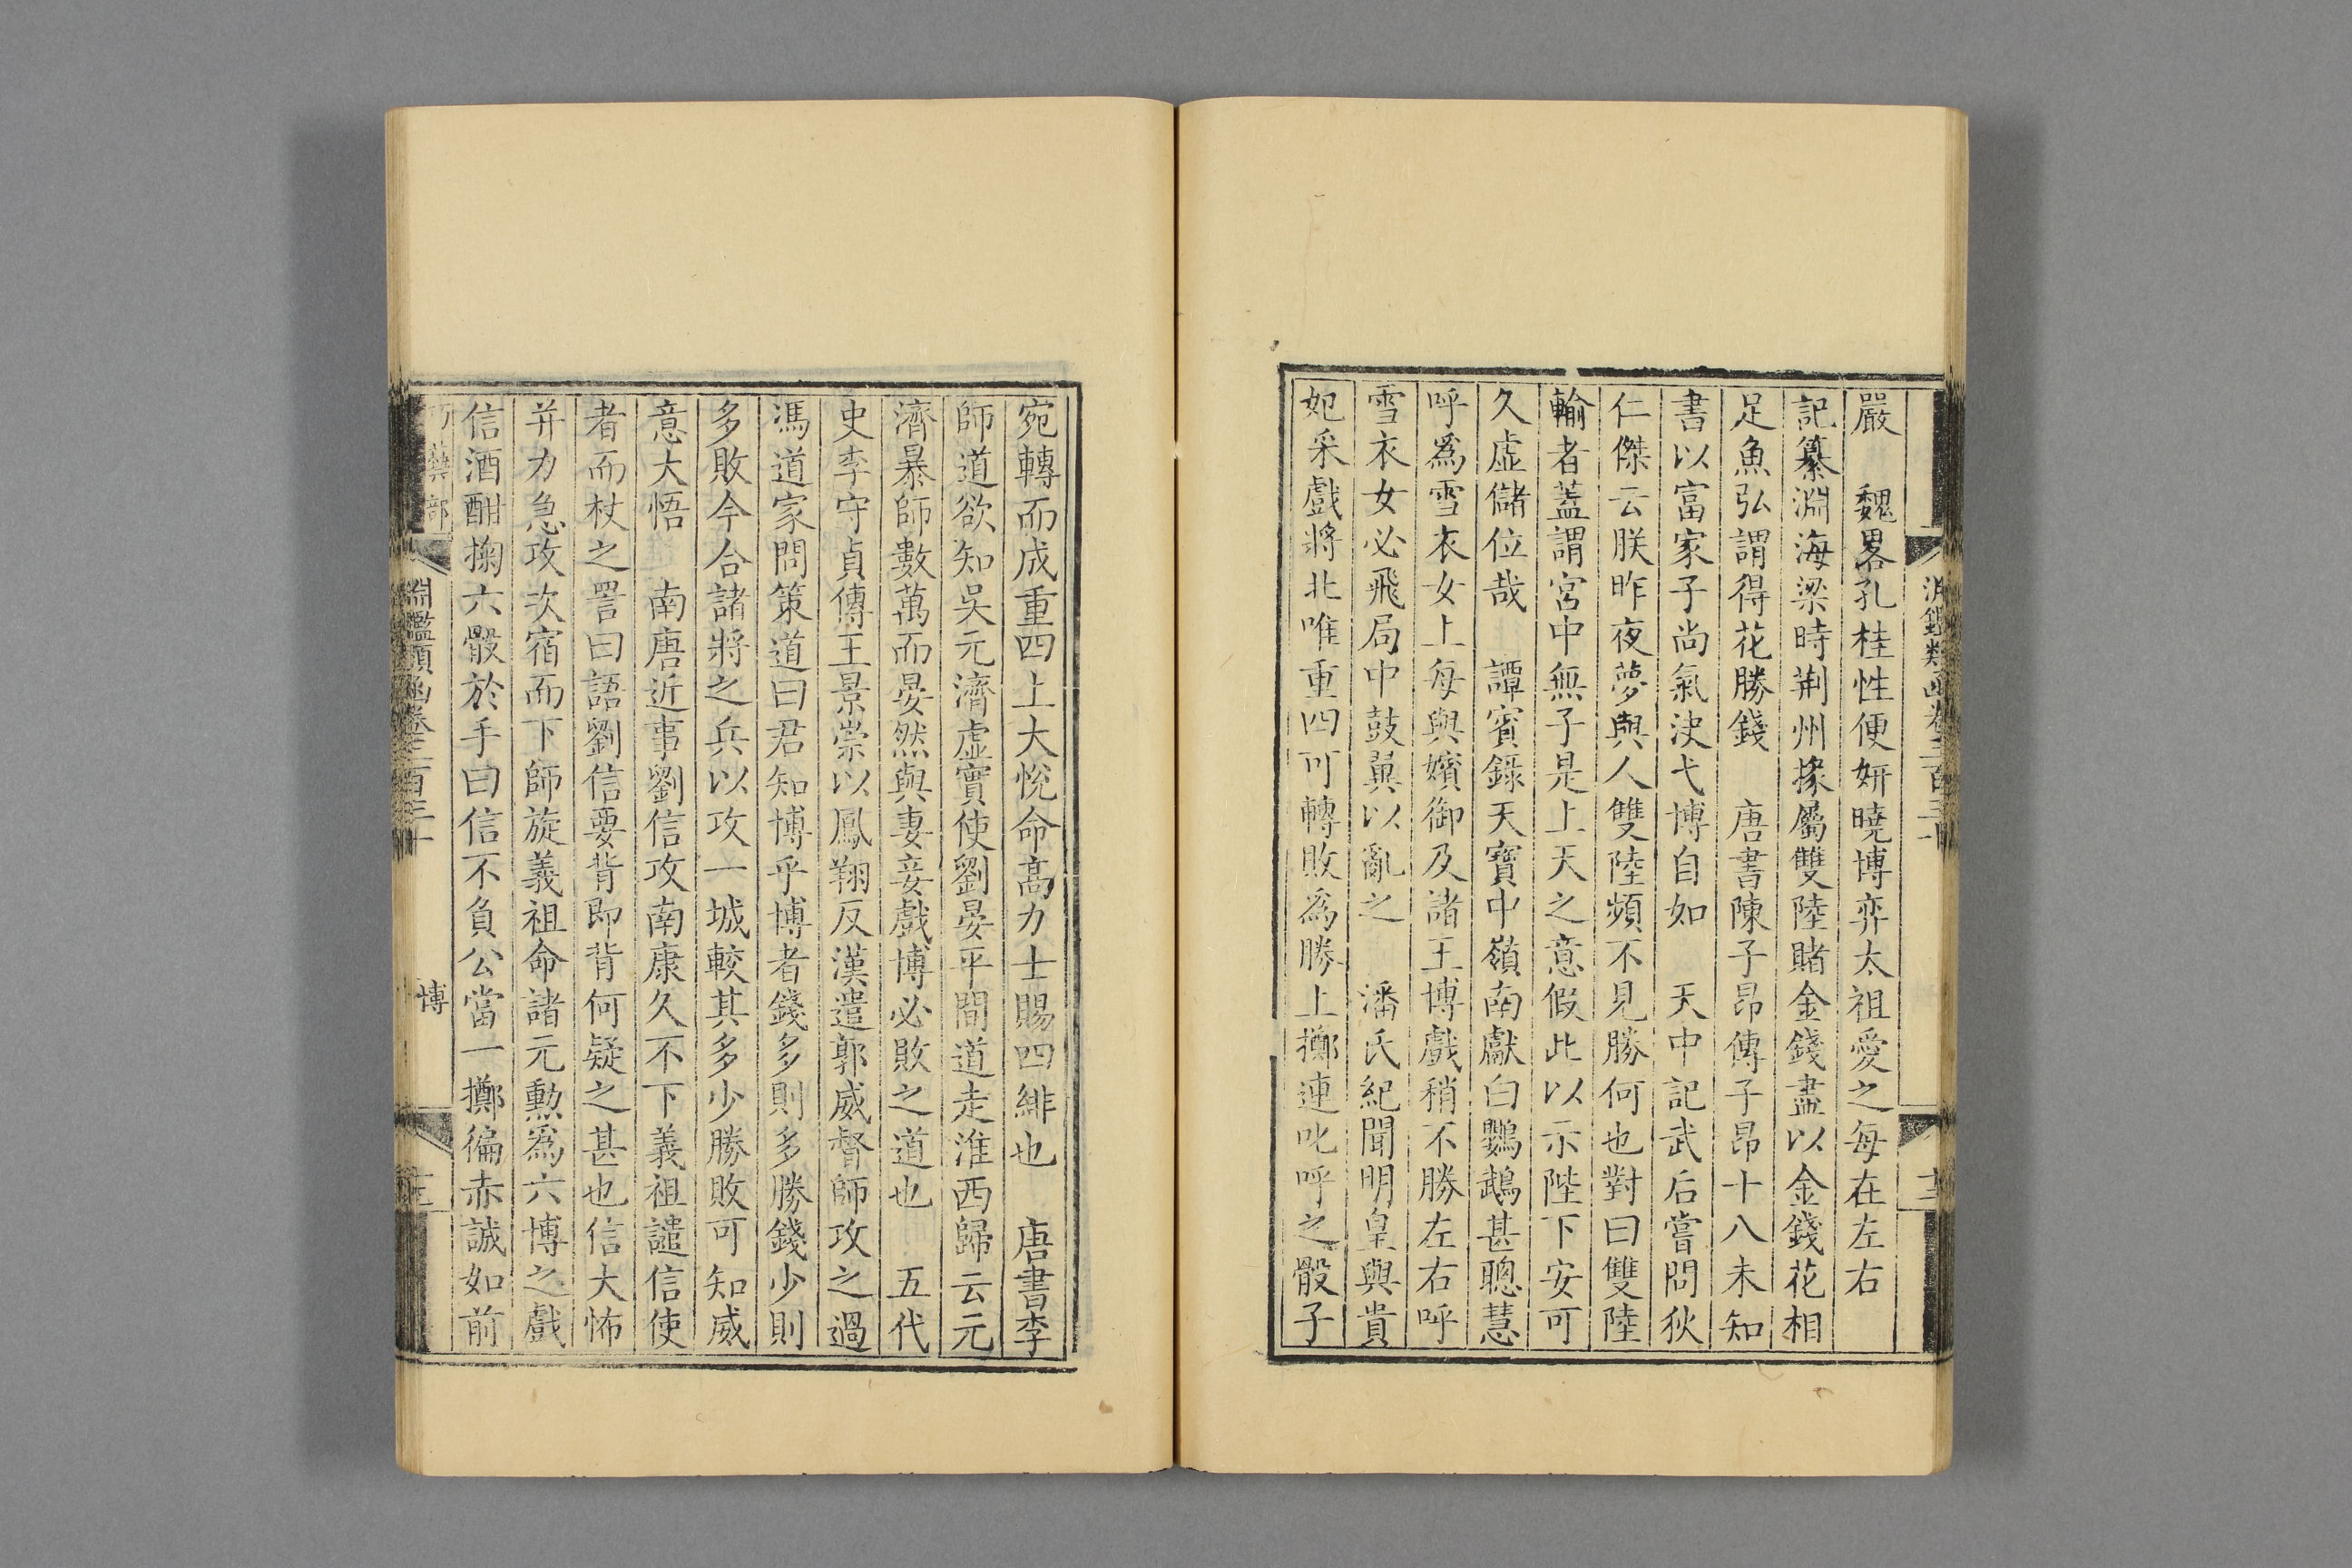 嚴　魏畧孔桂性便妍曉博弈太祖愛之每在左右
記纂淵海梁時荆州掾屬雙陸賭金錢盡以金錢花相
足魚弘謂得花勝錢　唐書陳子昂傳子昂十八未知
書以富家子尚氣决弋博自如　天中記武后嘗問狄
仁傑云朕昨夜夢與人雙陸頻不見勝何也對曰雙陸
輸者蓋謂宮中無子是上天之意假此以示陛下安可
久虛儲位哉　譚賓錄天寶中嶺南獻白鸚鵡甚聰慧
呼爲雪衣女上每與嬪御及諸王博戲稍不勝左右呼
雪衣女必飛局中鼓翼以亂之　潘氏紀聞明皇與貴
妃采戲將北唯重四可轉敗爲勝上擲連叱呼之骰子
宛轉而成重四上大悅命高力士賜四緋也　唐書李
師道欲知吳元濟虛實使劉晏平間道走淮西歸云元
濟暴師數萬而晏然與妻妾戲博必敗之道也　五代
史李守貞傳王景崇以鳳翔反漢遣郭威督師攻之過
馮道家問策道曰君知博乎博者錢多則多勝錢少則
多敗今合諸將之兵以攻一城較其多少勝敗可知威
意大悟　南唐近事劉信攻南康久不下義祖譴信使
者而杖之詈曰語劉信要背即背何疑之甚也信大怖
并力急攻次宿而下師旋義祖命諸元勳爲六博之戲
信酒酣掬六骰於手曰信不負公當一擲徧赤誠如前
淵鑑類函卷三百三十
博
十三